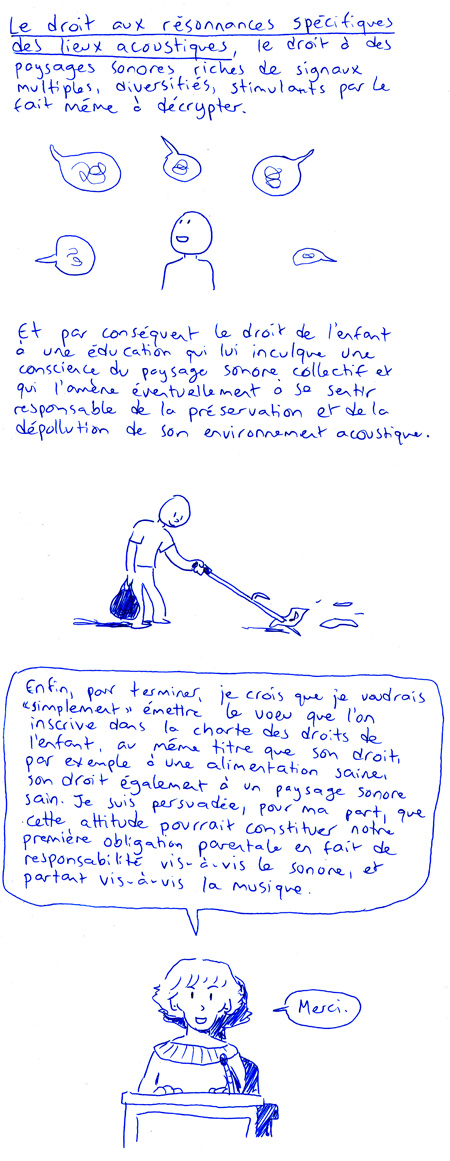 Le droit aux résonnances spécifiques
des lieux acoustiques, le droit à des
paysages sonores, riches de signaux
multiples, diversifiés, stimulants par le
fait même à décrypter.
Et par conséquent le droit de l'enfant
à une éducation qui lui inculque une
conscience du paysage sonore collectif et
qui l'amène éventuellement à se sentir
responsable de la préservation et de la
dépollution de son environnement acoustique.
Enfin, pour terminer, je crois que je voudrais
"simplement" émettre le voeu que l'on
inscrive dans la charte des droits de
l'enfant, au même titre que son droit,
par exemple à une alimentation saine,
son droit également à un paysage sonore
sain. Je suis persuadée, pour ma part, que
cette attitude pourrait constituer notre
première obligation parentale en fait de
responsabilité vis-à-vis le sonore, et
partant vis-à-vis la musique.
Merci.